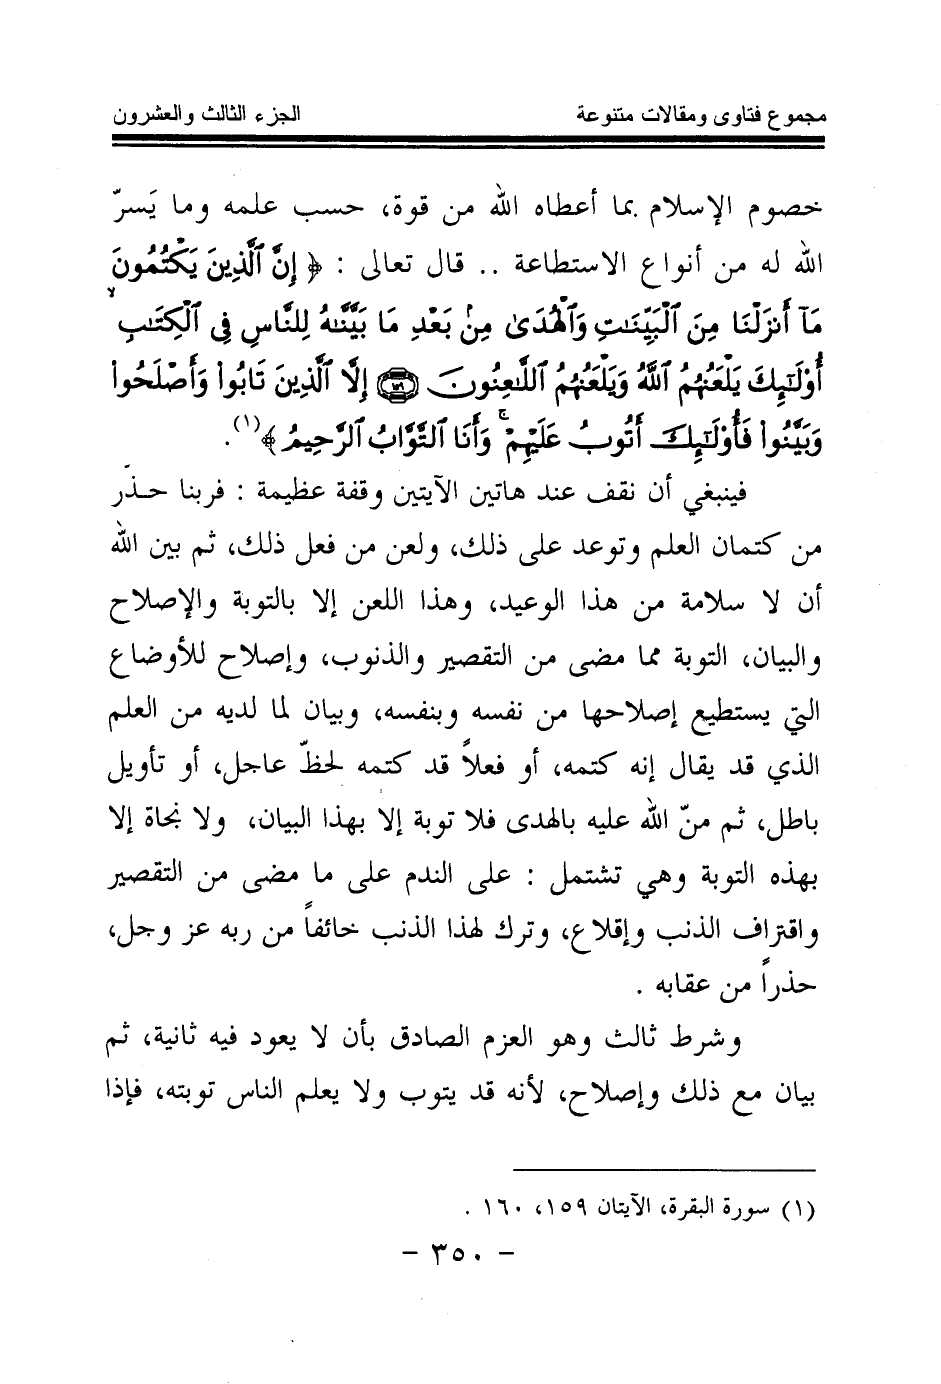 مجموع فتاوى ومقالات متنوعة الجزء الثالث والعشرون
خصوم الإسلام بما أعطاه الله من قوة، حسب علمه وما يَسرّ
الله له من أنواع الاستطاعة .. قال تعالى : ﴿ إِنَّ ٱلَّذِينَ يَكْتُمُونَ
مَآ أَنزَلْنَا مِنَ ٱلْبَيِّنَـٰتِ وَٱلْهُدَىٰ مِنۢ بَعْدِ مَا بَيَّنَّـٰهُ لِلنَّاسِ فِى ٱلْكِتَـٰبِ ۙ
أُو۟لَـٰٓئِكَ يَلْعَنُهُمُ ٱللَّهُ وَيَلْعَنُهُمُ ٱللَّـٰعِنُونَ ۝١٥٩ إِلَّا ٱلَّذِينَ تَابُوا۟ وَأَصْلَحُوا۟
وَبَيَّنُوا۟ فَأُو۟لَـٰٓئِكَ أَتُوبُ عَلَيْهِمْ ۚ وَأَنَا ٱلتَّوَّابُ ٱلرَّحِيمُ ﴾(١).
فينبغي أن نقف عند هاتين الآيتين وقفة عظيمة : فربنا حـذّر
من كتمان العلم وتوعد على ذلك، ولعن من فعل ذلك، ثم بين الله
أن لا سلامة من هذا الوعيد، وهذا اللعن إلا بالتوبة والإصلاح
والبيان، التوبة مما مضى من التقصير والذنوب، وإصلاح للأوضاع
التي يستطيع إصلاحها من نفسه وبنفسه، وبيان لما لديه من العلم
الذي قد يقال إنه كتمه، أو فعلاً قد كتمه لحظّ عاجل، أو تأويل
باطل، ثم منّ الله عليه بالهدى فلا توبة إلا بهذا البيان، ولا نجاة إلا
بهذه التوبة وهي تشتمل : على الندم على ما مضى من التقصير
واقتراف الذنب وإقلاع، وترك لهذا الذنب خائفاً من ربه عز وجل،
حذراً من عقابه .
وشرط ثالث وهو العزم الصادق بأن لا يعود فيه ثانية، ثم
بيان مع ذلك وإصلاح، لأنه قد يتوب ولا يعلم الناس توبته، فإذا
(١) سورة البقرة، الآيتان ١٥٩، ١٦٠ .
– ٣٥٠ –